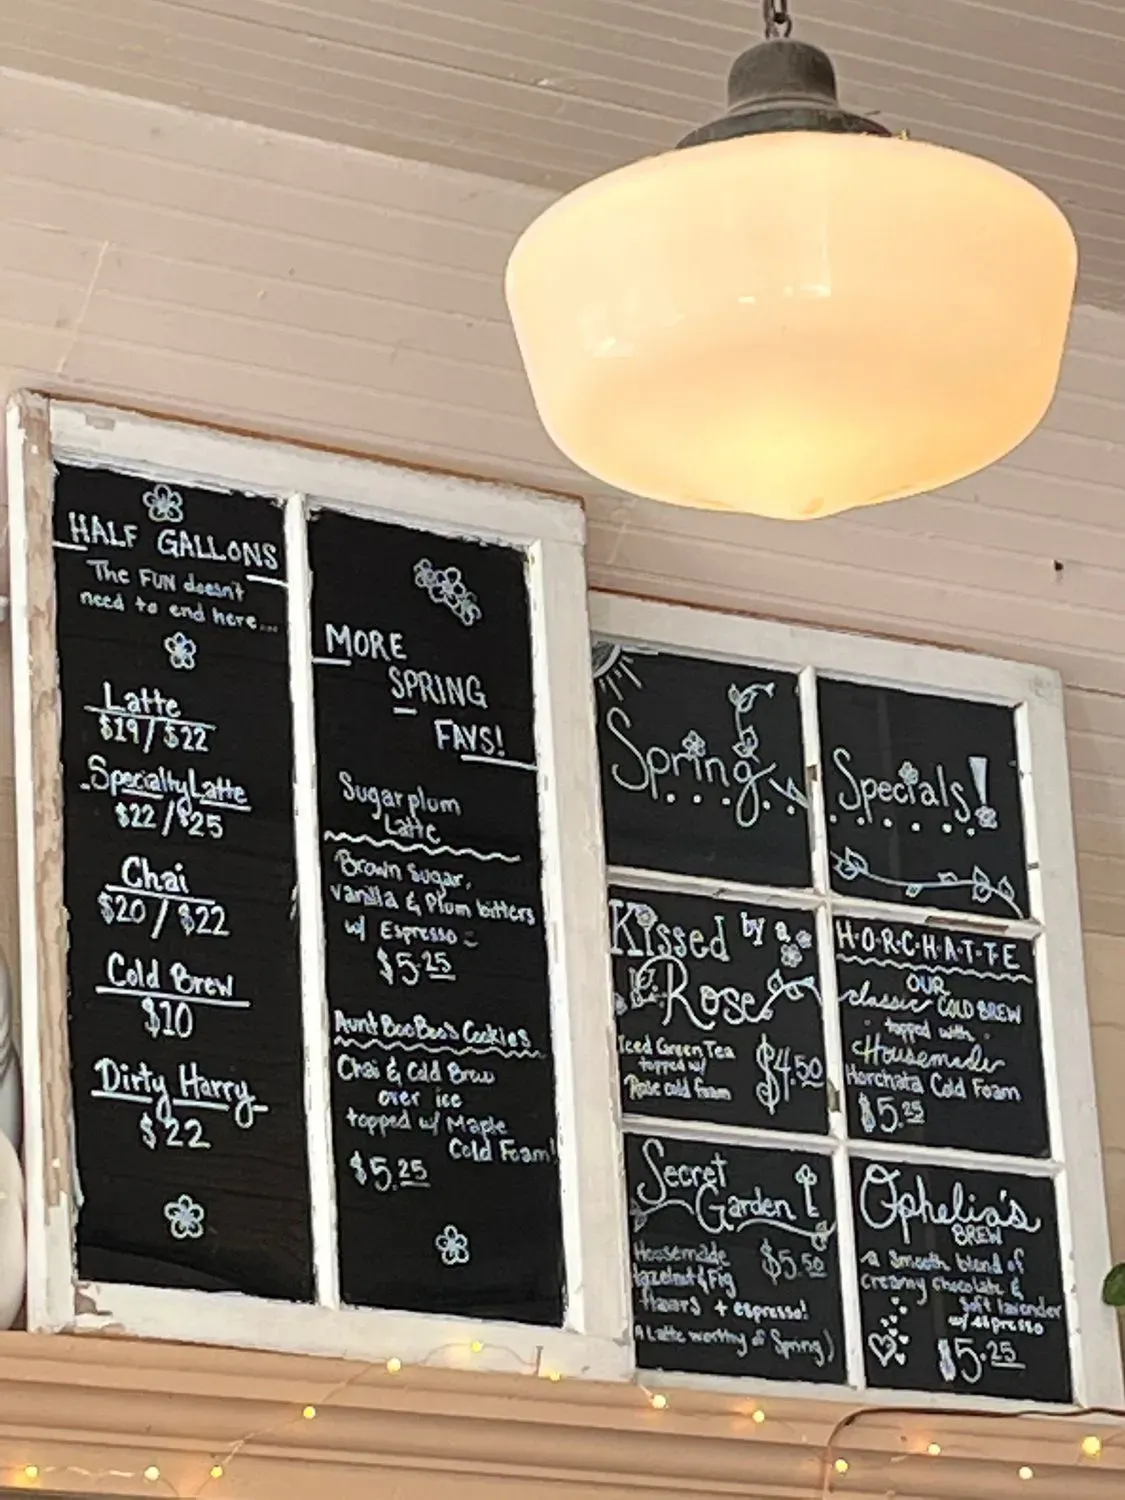 HALF GALLONS
The FUN doesn't
need to end here...
Latte
$19/$22
Specialty Latte
$22/$25
Chai
$20/$22
Cold Brew
$10
Dirty Harry
$22
MORE
SPRING
FAVS!
Sugarplum
Latte
Brown Sugar,
Vanilla & Plum bitters
w/ Espresso
$5.25
Aunt BooBoo's Cookies
Chai & Cold Brew
over ice
topped w/ Maple
Cold Foam!
$5.25
Spring
Specials!
Kissed by a
Rose
Iced Green Tea
topped w/
Rose cold foam
$4.50
H·O·R·C·H·A·T·T·E
OUR
classic COLD BREW
topped with
Housemade
Horchata Cold Foam
$5.25
Secret
Garden
Housemade
hazelnut & Fig
flavors + espresso!
$5.50
(A Latte worthy of Spring)
Ophelia's
BREW
a smooth blend of
creamy chocolate &
soft lavender
w/ espresso
$5.25